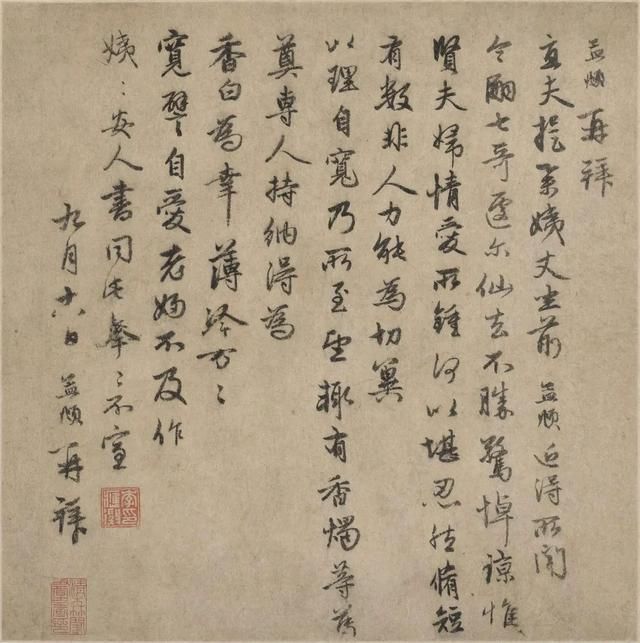 孟頫再拜
直夫提舉姨丈坐前孟頫近得所聞
令嗣七哥遽尔仙去不勝驚悼諒惟
賢夫婦情愛所鍾何以堪忍然脩短
有數非人力能為切冀
以理自寬乃所至望輒有香燭等為
奠專人持納得為
香白為幸薄冷万〻
寬譬自愛老婦不及作
姨〻安人書同此奉〻不宣
九月十六日孟頫再拜